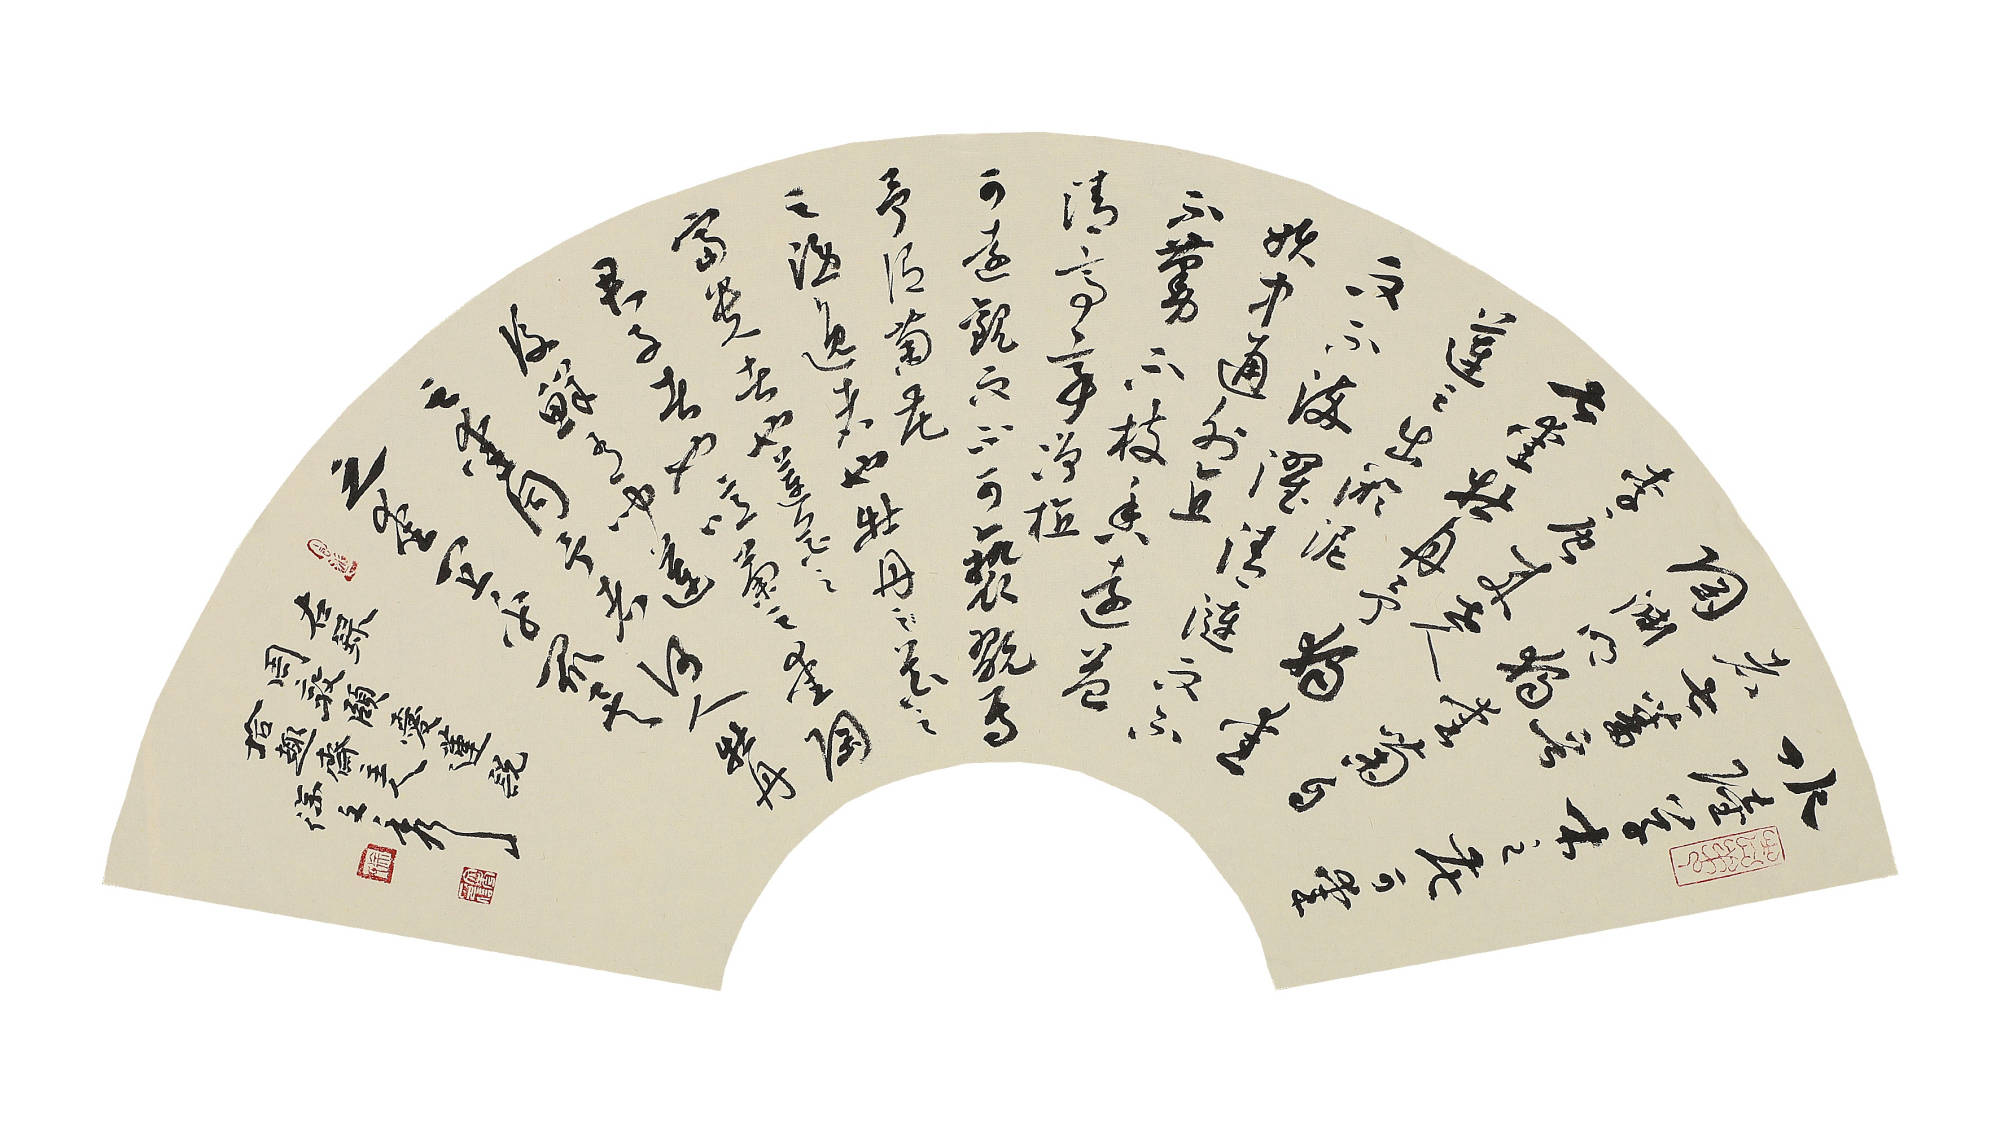 水陸草木之花可愛
者甚蕃晉
陶淵明獨愛菊自
李唐來世人
甚愛牡丹予獨愛
蓮之出淤泥
而不染濯清漣而不
妖中通外直
不蔓不枝香遠益
清亭亭淨植
可遠觀而不可褻翫焉
予謂菊花
之隱逸者也牡丹花之
富貴者也蓮花之
君子者也噫菊之愛陶
後鮮有聞蓮
之愛同予者何人牡丹
之愛宜乎眾矣
右錄
周敦頤愛蓮說
拾趣齋主人徐文